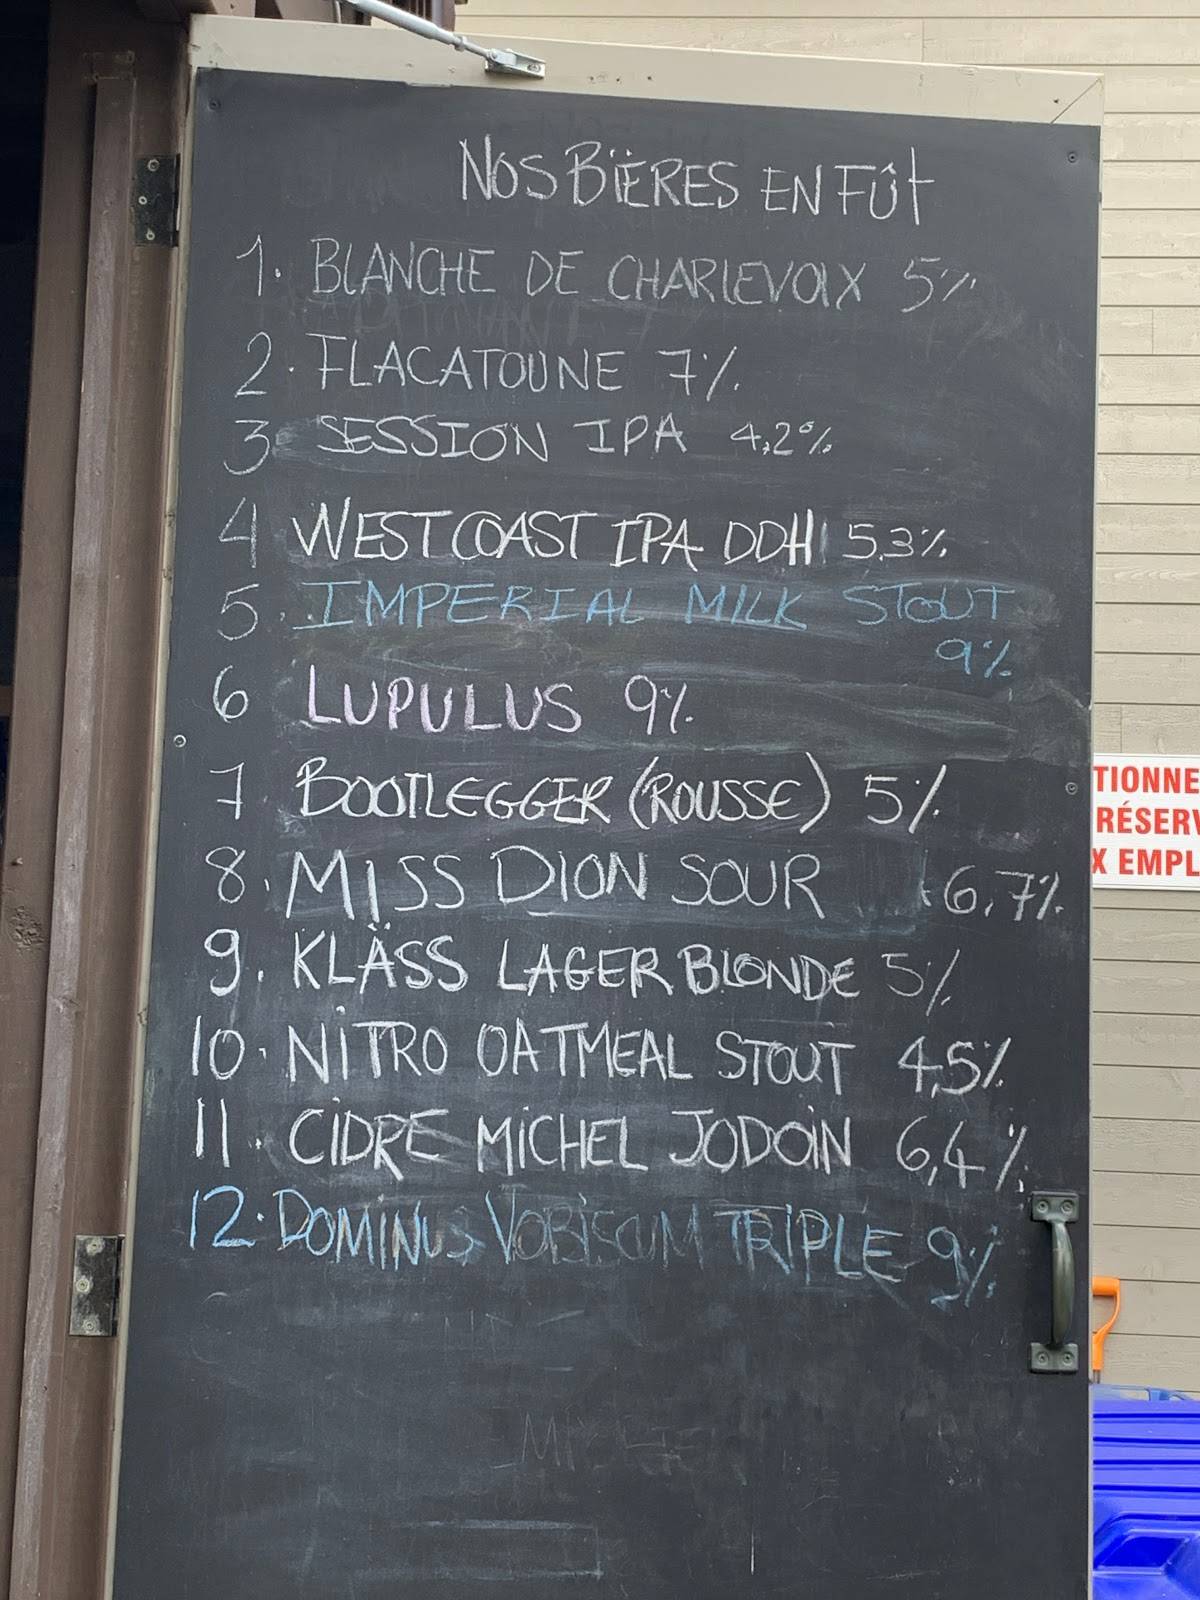 NOS BIÈRES EN FÛT
1. BLANCHE DE CHARLEVOIX 5%
2. FLACATOUNE 7%
3 SESSION IPA 4,2%
4 WEST COAST IPA DDH 5.3%
5. IMPERIAL MILK STOUT
9%
6 LUPULUS 9%
7 BOOTLEGGER (ROUSSE) 5%
8. MISS DION SOUR 6,7%
9. KLÄSS LAGER BLONDE 5%
10. NITRO OATMEAL STOUT 4,5%
11. CIDRE MICHEL JODOIN 6,4%
12. DOMINUS VOBISCUM TRIPLE 9%
TIONNE
RÉSERV
X EMPL